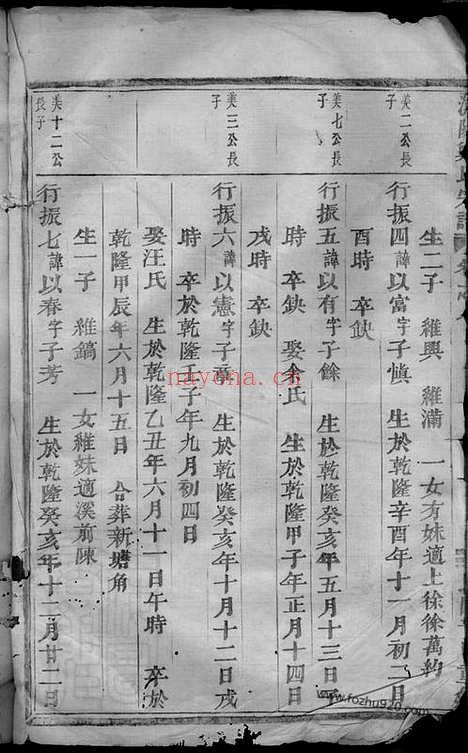 生二子 維興 維滿 一女有妹適上徐徐萬約
美二公長子
行振四諱以富字子慎 生於乾隆辛酉年十一月初二日
酉時 卒缺
美七公長子
行振五諱以有字子餘 生於乾隆癸亥年五月十三日
時 卒缺 娶余氏 生於乾隆甲子年正月十四日
戌時 卒缺
美三公長子
行振六諱以憲字子亭 生於乾隆癸亥年十月十二日戌
時 卒於乾隆壬子年九月初四日
娶汪氏 生於乾隆乙丑年六月十一日午時 卒於
乾隆甲辰年六月十五日 合葬新塘角
生一子 維鎬 一女維妹適溪前陳
美十二公長子
行振七諱以春字子芳 生於乾隆癸亥年十二月廿二日
nayona.cn
www.fozhu920.com